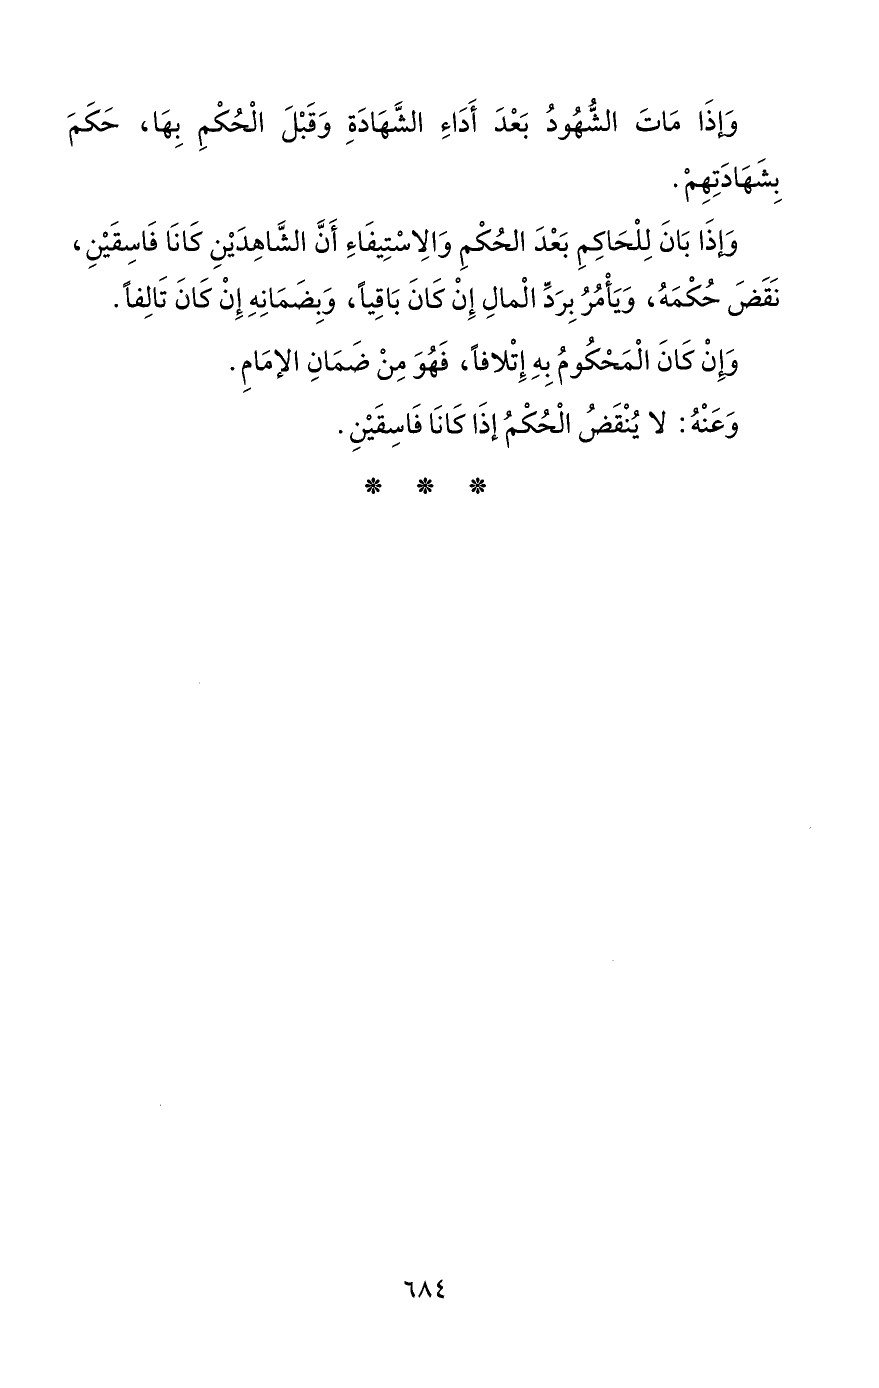 وَإِذَا مَاتَ الشُّهُودُ بَعْدَ أَدَاءِ الشَّهَادَةِ وَقَبْلَ الْحُكْمِ بِهَا، حَكَمَ
بِشَهَادَتِهِمْ.
وَإِذَا بَانَ لِلْحَاكِمِ بَعْدَ الحُكْمِ وَالِاسْتِيفَاءِ أَنَّ الشَّاهِدَيْنِ كَانَا فَاسِقَيْنِ،
نَقَضَ حُكْمَهُ، وَيَأْمُرُ بِرَدِّ الْمالِ إِنْ كَانَ بَاقِياً، وَبِضَمَانِهِ إِنْ كَانَ تَالِفاً.
وَإِنْ كَانَ الْمَحْكُومُ بِهِ إِتْلافاً، فَهُوَ مِنْ ضَمَانِ الإمَامِ.
وَعَنْهُ: لا يُنْقَضُ الْحُكْمُ إذَا كَانَا فَاسِقَيْنِ.
* * *
٦٨٤